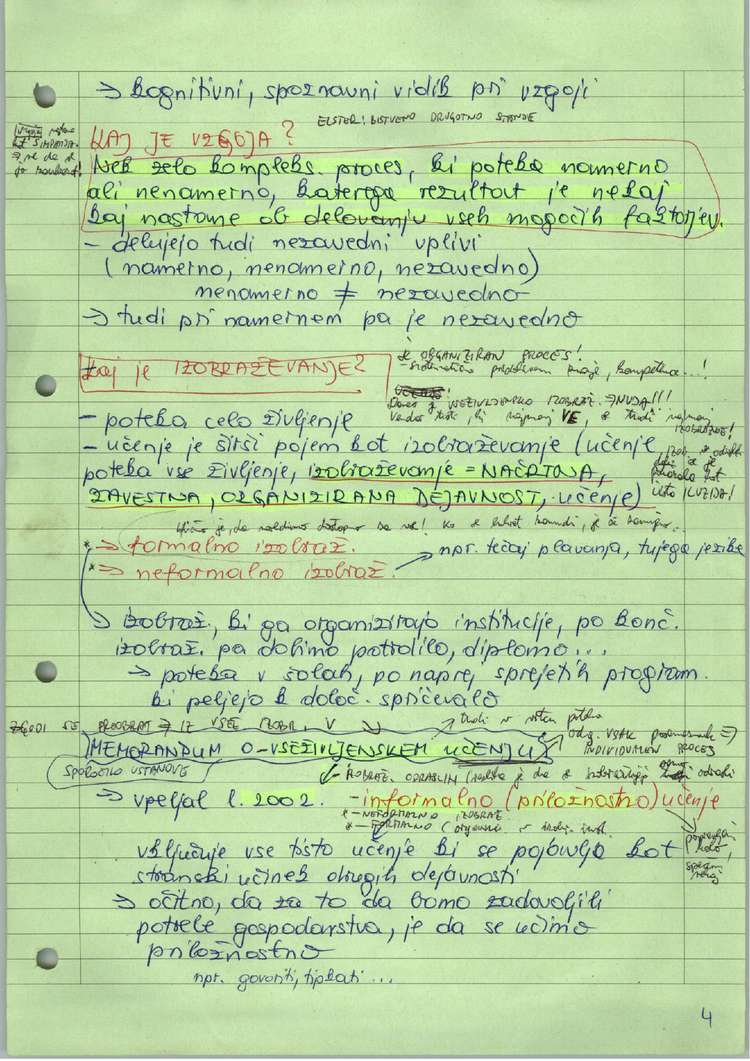 → kognitivni, spoznavni vidik pri vzgoji
ELSTER! BISTVENO DRUGOTNO STANJE
KAJ JE VZGOJA?
Nek zelo kompleks. proces, ki poteka namerno
ali nenamerno, katerega rezultat je nekaj
kaj nastane ob delovanju vseh mogočih faktorjev.
- delujejo tudi nezavedni vplivi
(namerno, nenamerno, nezavedno)
nenamerno ≠ nezavedno
→ tudi pri namernem pa je nezavedno
Kaj je IZOBRAŽEVANJE?
je ORGANIZIRAN PROCES!
- sistematično znanje, kompetence...!
VSEŽIVLJENJSKO IZOBRAŽ. → NUJA!!!
- poteka celo življenje
- učenje je širši pojem kot izobraževanje (učenje
poteka vse življenje, izobraževanje = NAČRTNA,
ZAVESTNA, ORGANIZIRANA DEJAVNOST, učenje)
* → formalno izobraž.
* → neformalno izobraž. → npr. tečaj plavanja, tujega jezika
→ izobraž., ki ga organizirajo institucije, po konč.
izobraž. pa dobimo potrdilo, diplomo...
→ poteka v šolah, po naprej sprejetih program.
ki peljejo k določ. spričevalo
ZGODI SE PREOBRAT → IZ VSEŽ. IZOBR. V
MEMORANDUM O VSEŽIVLJENSKEM UČENJU
odg. VSAK posameznik →
INDIVIDUALEN PROCES
SPOROČILO USTANOVE
→ vpeljal l. 2002. - informalno (priložnostno) učenje
* - NEFORMALNO IZOBRAŽ
* - FORMALNO
vključuje vse tisto učenje ki se pojavlja kot
stranski učinek drugih dejavnosti
→ očitno, da za to da bomo zadovoljili
potrebe gospodarstva, je da se učimo
priložnostno
npr. govoriti, tipkati...
4